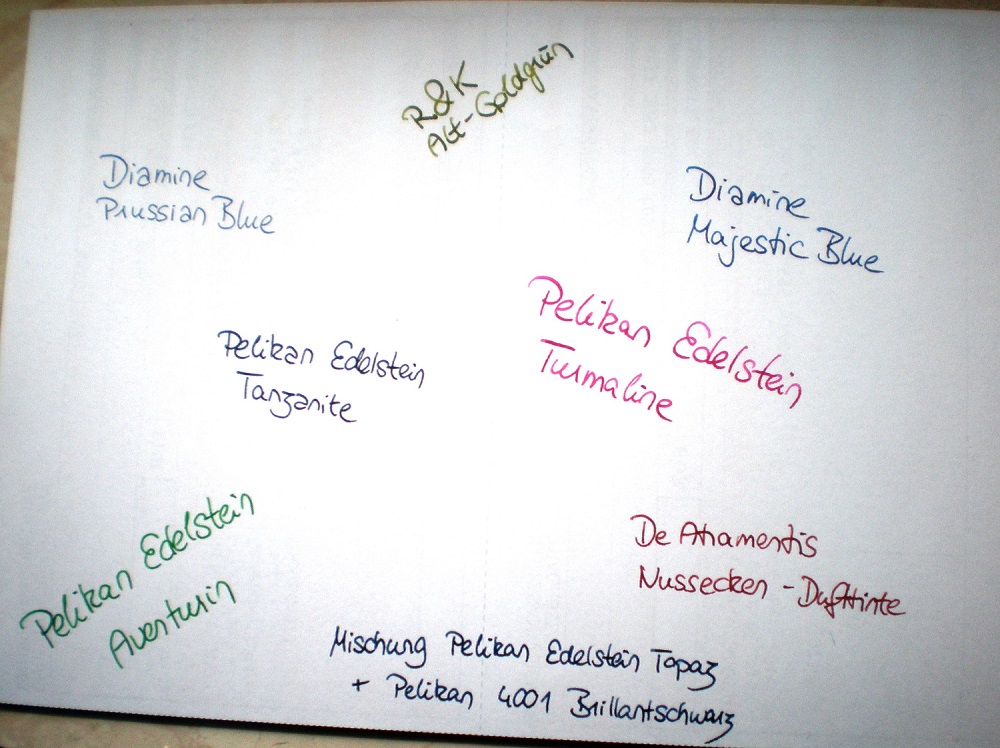 R&K
Alt-Goldgrün
Diamine
Prussian Blue
Diamine
Majestic Blue
Pelikan Edelstein
Turmaline
Pelikan Edelstein
Tanzanite
Pelikan Edelstein
Aventurin
De Atramentis
Nussecken - Dufttinte
Mischung Pelikan Edelstein Topaz
+ Pelikan 4001 Brillantschwarz